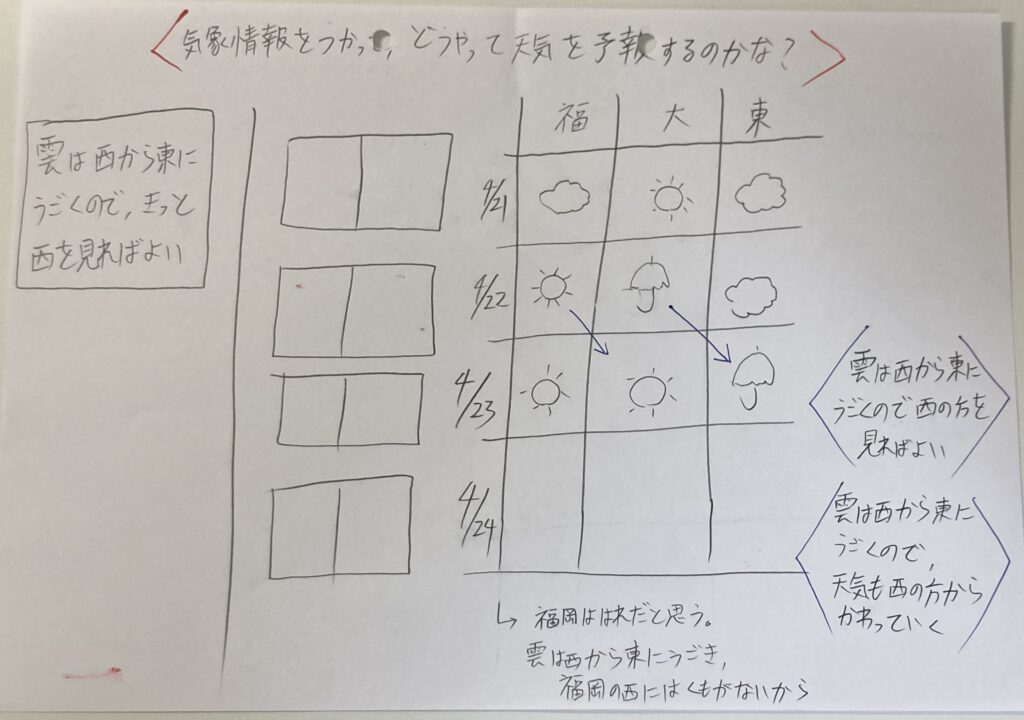 気象情報をつかって, どうやって天気を予報するのかな?
雲は西から東に
うごくので, きっと
西を見ればよい
福 大 東
4/21
4/22
4/23
4/24
雲は西から東に
うごくので西の方を
見ればよい
雲は西から東に
うごくので,
天気も西の方から
かわっていく
↳ 福岡ははれだと思う。
雲は西から東にうごき,
福岡の西にはくもがないから